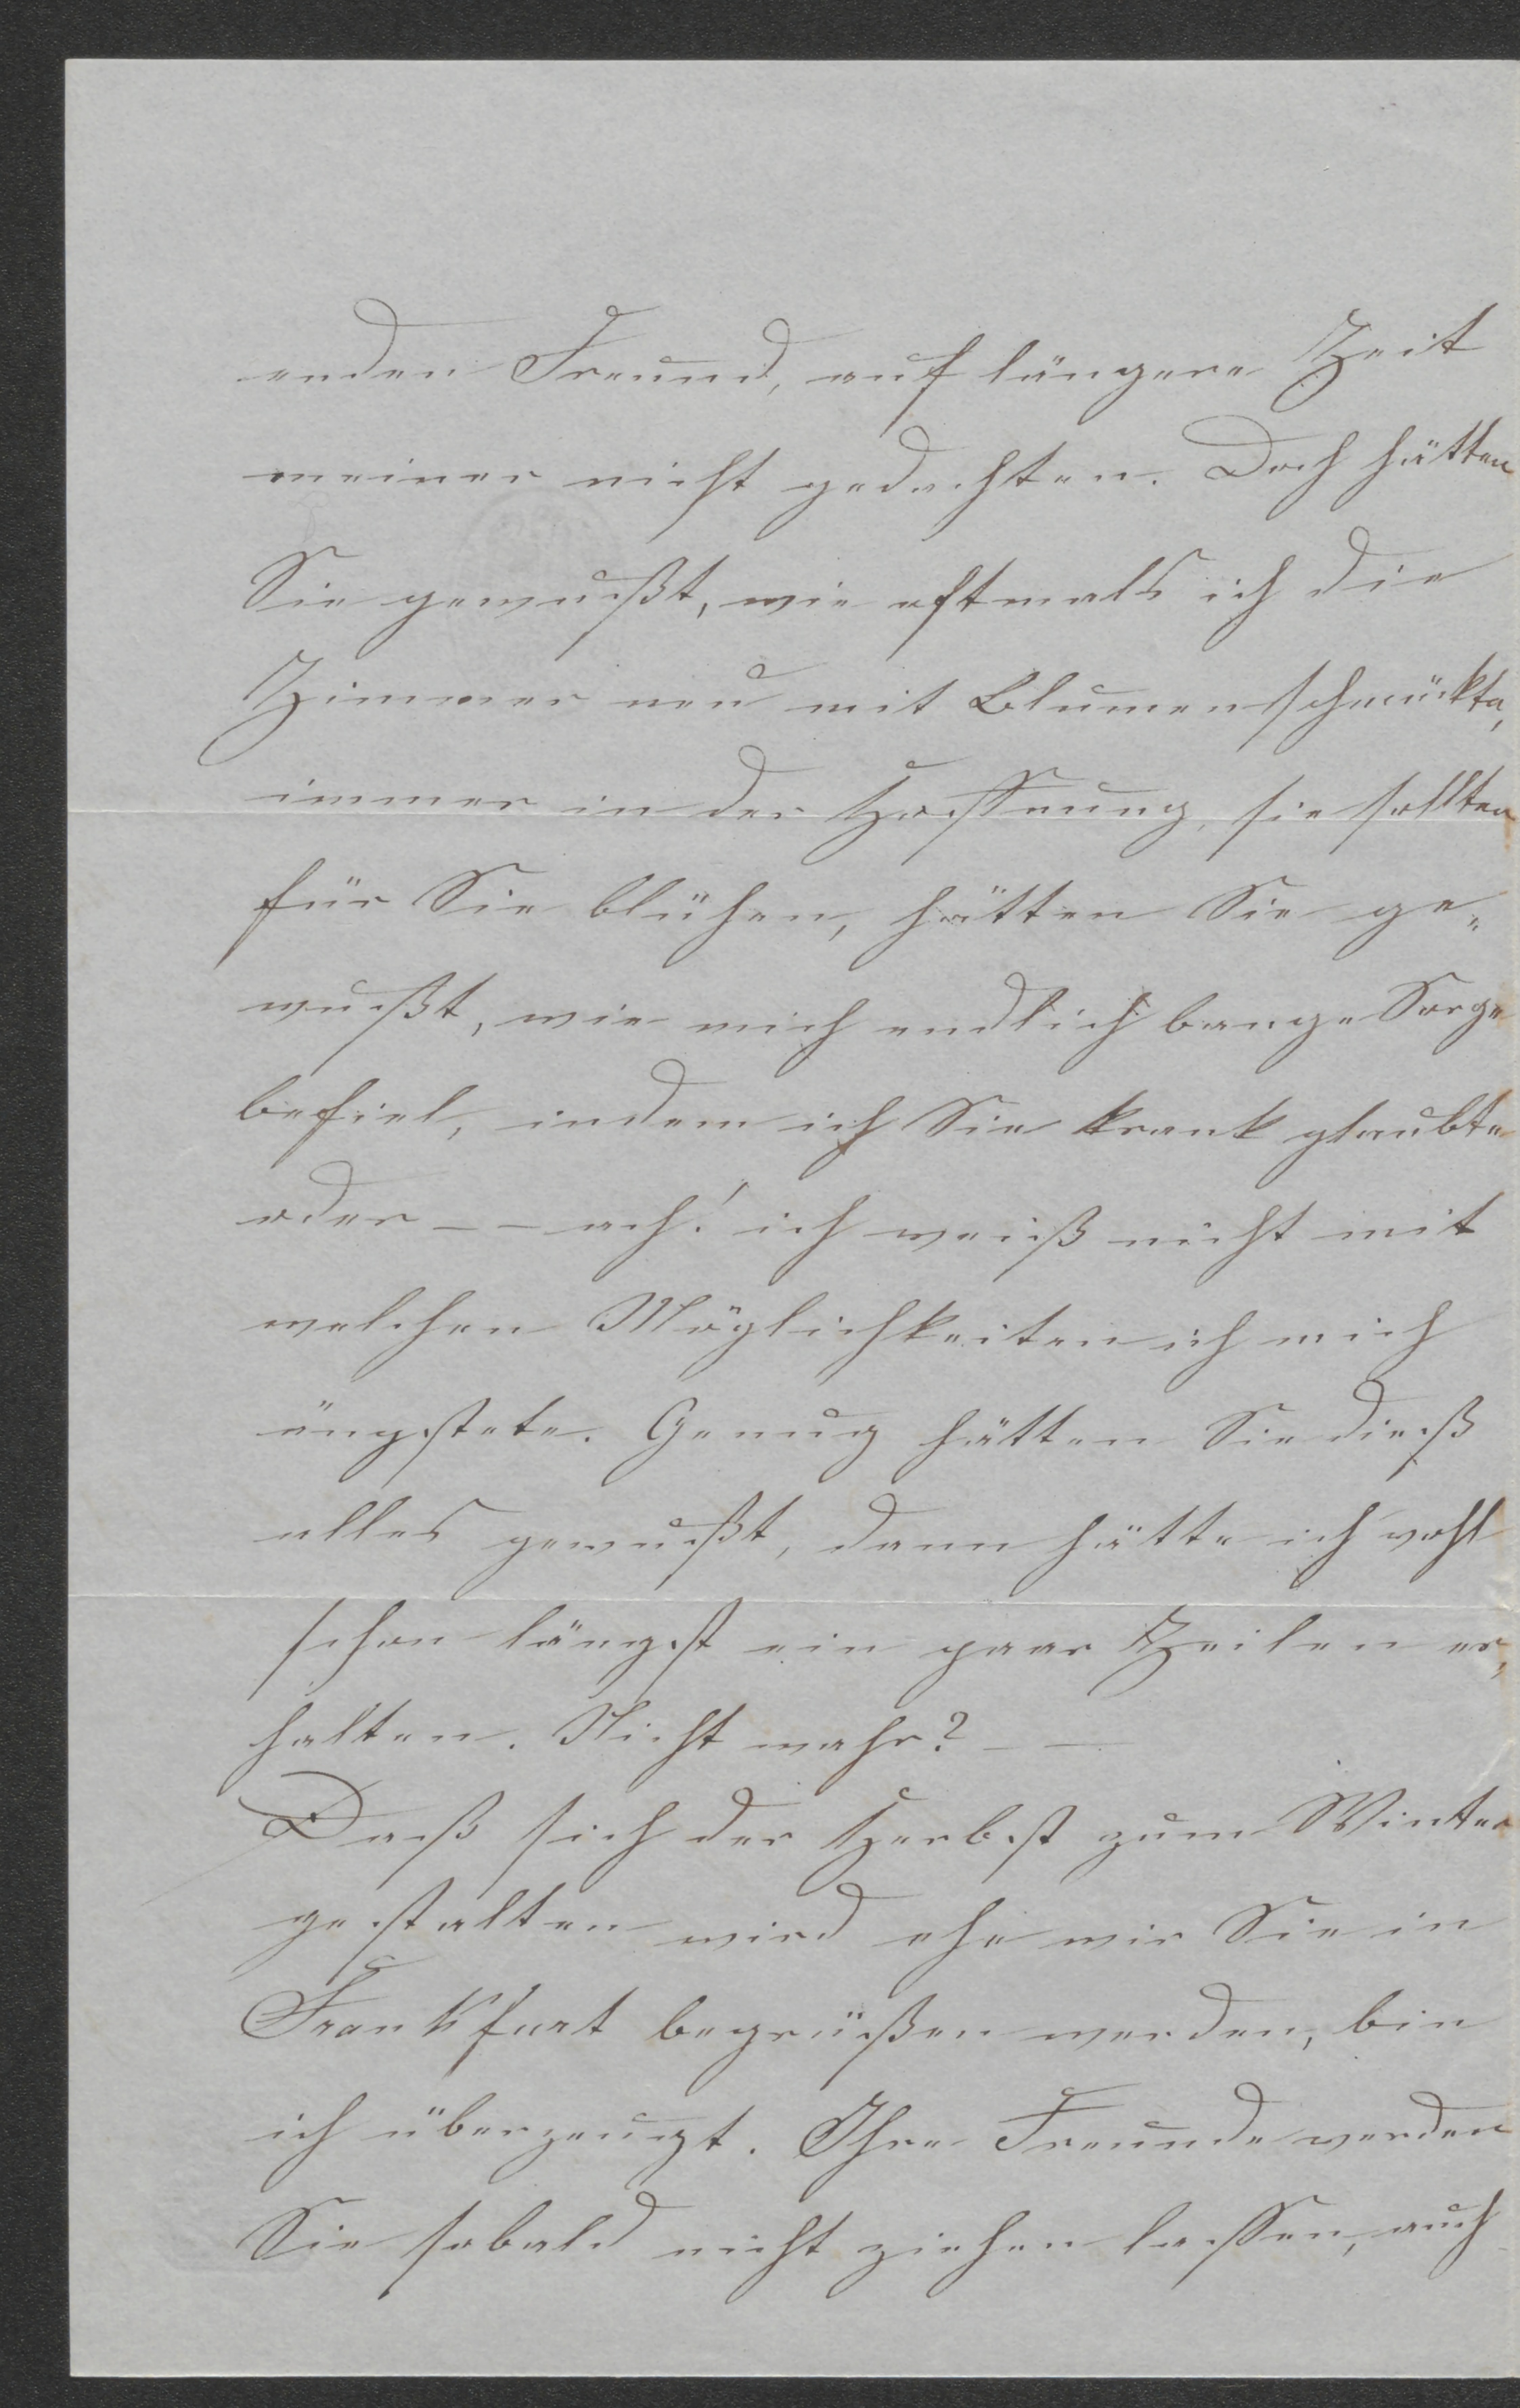 enden Freund, auf längere Zeit
meiner nicht gedachten. Doch hätten
Sie gewußt, wie oftmals ich die
Zimmer neu mit Blumen schmückte,
immer in der Hoffnung, sie sollten
für Sie blühen, hätten Sie ge-
wußt, wie mich endlich bange Sorge
befiel, indem ich Sie krank glaubte
oder – – ach! ich weiß nicht mit
welchen Möglichkeiten ich mich
ängstete. Genug hätten Sie dieß
alles gewußt, dann hätte ich wohl
schon längst ein paar Zeilen er-
halten. Nicht wahr? – –
Daß sich der Herbst zum Winter
gestalten wird ehe wir Sie in
Frankfurt begrüßen werden, bin
ich überzeugt. Ihre Freunde werden
Sie sobald nicht ziehen lassen, auch